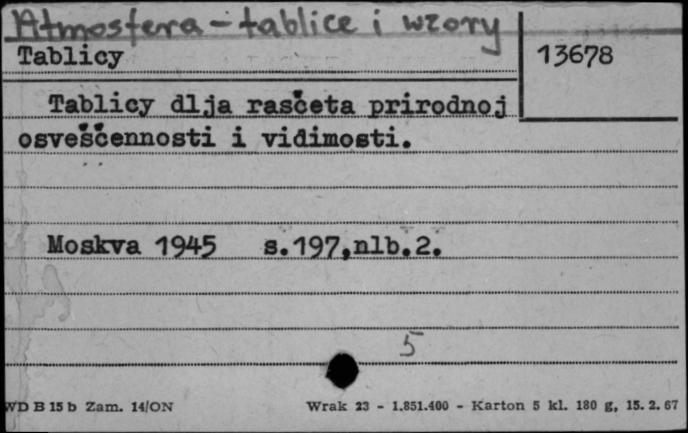 Atmosfera - tablice i wzory
Tablicy
13678
Tablicy dlja rasčeta prirodnoj
osveščennosti i vidimosti.
Moskva 1945 s.197,nlb.2.
5
WD B 15 b Zam. 14/ON Wrak 23 - 1.851.400 - Karton 5 kl. 180 g, 15. 2. 67